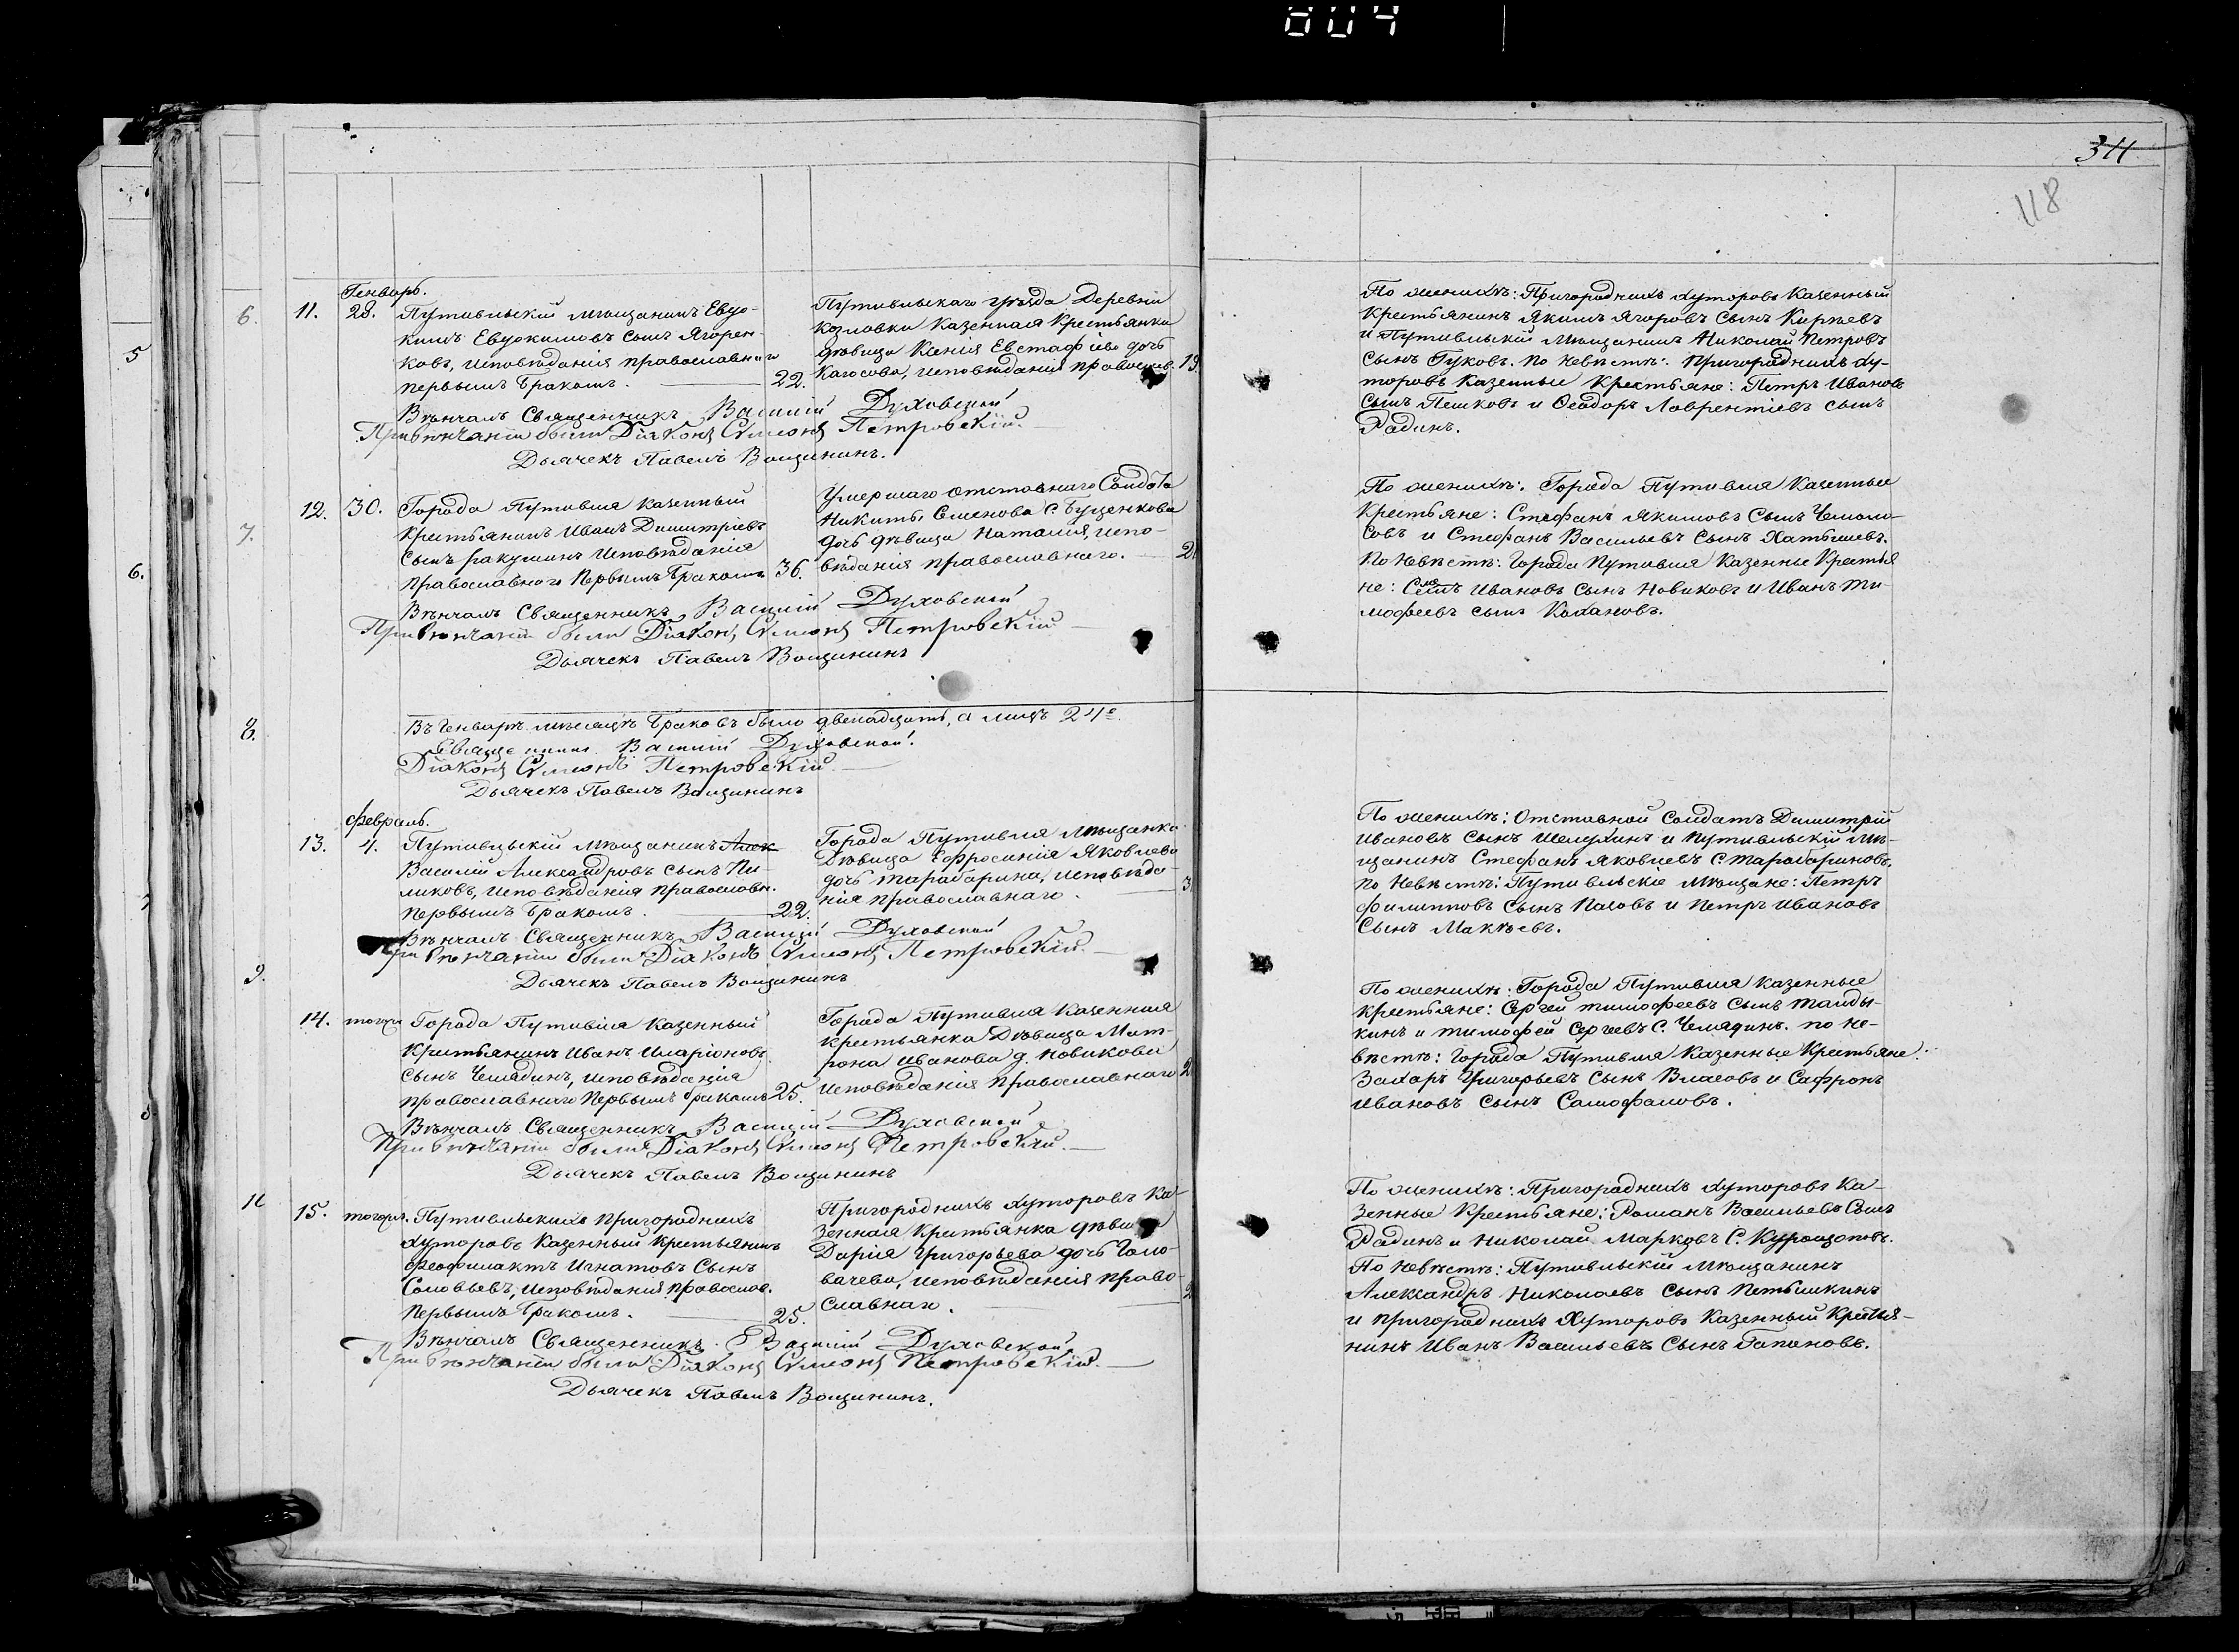 004
311
118
Генварь.
11. 28. Путивльскій мѣщанинъ Евдо-
кимъ Евдокимовъ сынъ Ягорен-
ковъ, исповѣданія православнаго
первымъ бракомъ. 22.
Путивльскаго уѣзда Деревни
Козловки Казенная Крестьянка
дѣвица Ксенія Евстафіева дочь
исповѣданія православ. 19
Вѣнчалъ Священникъ Василій Духовской
При вѣнчаніи были Діаконъ Сѵмеонъ Петровскій.
Дьячекъ Павелъ Вощининъ.
По женихѣ: Пригородныхъ хуторовъ Казенный
Крестьянинъ Якимъ Ягоровъ сынъ Кирѣевъ
и Путивльскій Мѣщанинъ Николай Петровъ
сынъ Гуковъ. по невѣстѣ: Пригородныхъ ху-
торовъ Казенные Крестьяне: Петръ Ивановъ
сынъ Пешковъ и Ѳеодоръ Лаврентіевъ сынъ
Радинъ.
12. 30. Города Путивля казенный
крестьянинъ Иванъ Димитріевъ
сынъ ракушинъ исповѣданія
православнаго первымъ бракомъ 36.
Умершаго отставнаго Солдата
Никиты Семенова С. Буценкова
дочь дѣвица Наталія, испо-
вѣданія православнаго. 2
Вѣнчалъ Священникъ Василій Духовской
При вѣнчаніи были Діаконъ Сѵмеонъ Петровскій
Дьячекъ Павелъ Вощининъ
По женихѣ: Города Путивля Казенные
Крестьяне: Стефанъ Якимовъ Сынъ Чемоло-
совъ и Стефанъ Васильевъ Сынъ Халтыгевъ.
По Невѣстѣ: Города Путивля Казенные Крестья
не: Ивановъ Сынъ Новиковъ и Иванъ Ти
мофеевъ сынъ Кахановъ.
Въ Генварѣ мѣсяцѣ браковъ было двенадцать, а лицъ 24е.
Священникъ Василій Духовской.
Діаконъ Сѵмеонъ Петровскій.
Дьячекъ Павелъ Вощининъ
Февраль.
13. 4. Путивльскій мѣщанинъ Алек
Василій Александровъ сынъ Пи-
ликовъ, исповѣданія православн.
первымъ бракомъ. 22.
Города Путивля Мѣщанка
Дѣвица Ефросинія Яковлева
дочь тарабарина, исповѣда
нія православнаго. 3
Вѣнчалъ Священникъ Василій Духовской
При вѣнчаніи были Діаконъ Сѵмеонъ Петровскій.
Дьячекъ Павелъ Вощининъ
По женихѣ: Отставной Солдатъ Димитрій
Ивановъ Сынъ Шелухинъ и Путивльскій Мѣ-
щанинъ Стефанъ Яковлевъ С. Тарабариновъ,
по Невѣстѣ: Путивльскіе Мѣщане: Петръ
Филиповъ Сынъ и Петръ Ивановъ
Сынъ Макѣевъ.
14. тогожъ Города Путивля Казенный
Крестьянинъ Иванъ Иларіоновъ
сынъ Челядинъ, исповѣданія
православнаго первымъ бракомъ 25.
Города Путивля Казенная
Крестьянка Дѣвица Мат-
рона Иванова д. Новикова
исповѣданія православнаго 2
Вѣнчалъ Священникъ Василій Духовской
При вѣнчаніи были Діаконъ Сѵмеонъ Петровскій.
Дьячекъ Павелъ Вощининъ
По женихѣ: Города Путивля казенные
крестьяне: Сергей тимофеевъ Сынъ Манды-
кинъ и тимофей Сергеевъ С. Челядинъ. по Не-
вѣстѣ: Города Путивля Казенные Крестьяне:
Захаръ Григорьевъ Сынъ Власовъ и Сафронъ
Ивановъ Сынъ Самофаловъ.
15. тогожъ. Путивльскихъ Пригородныхъ
хуторовъ Казенный Крестьянинъ
Феофилактъ Игнатовъ Сынъ
Соловьевъ, исповѣданія православ.
Первымъ бракомъ. 25.
Пригородныхъ хуторовъ Ка-
зенная Крестьянка дѣвица
Дарія Григорьева дочь Голо-
вачева, исповѣданія право-
славнаго. 2
Вѣнчалъ Священникъ Василій Духовской
При вѣнчаніи были Діаконъ Сѵмеонъ Петровскій.
Дьячекъ Павелъ Вощининъ.
По женихѣ: Пригородныхъ хуторовъ Ка-
зенные Крестьяне: Романъ Васильевъ Сынъ
Радинъ и Николай Марковъ С. Курощоповъ.
По Невѣстѣ: Путивльскій Мѣщанинъ
Александръ Николаевъ Сынъ Петышкинъ
и пригородныхъ Хуторовъ Казенный Крестья-
нинъ Иванъ Васильевъ Сынъ Гапановъ.
5
6.
6.
7.
8.
9.
10